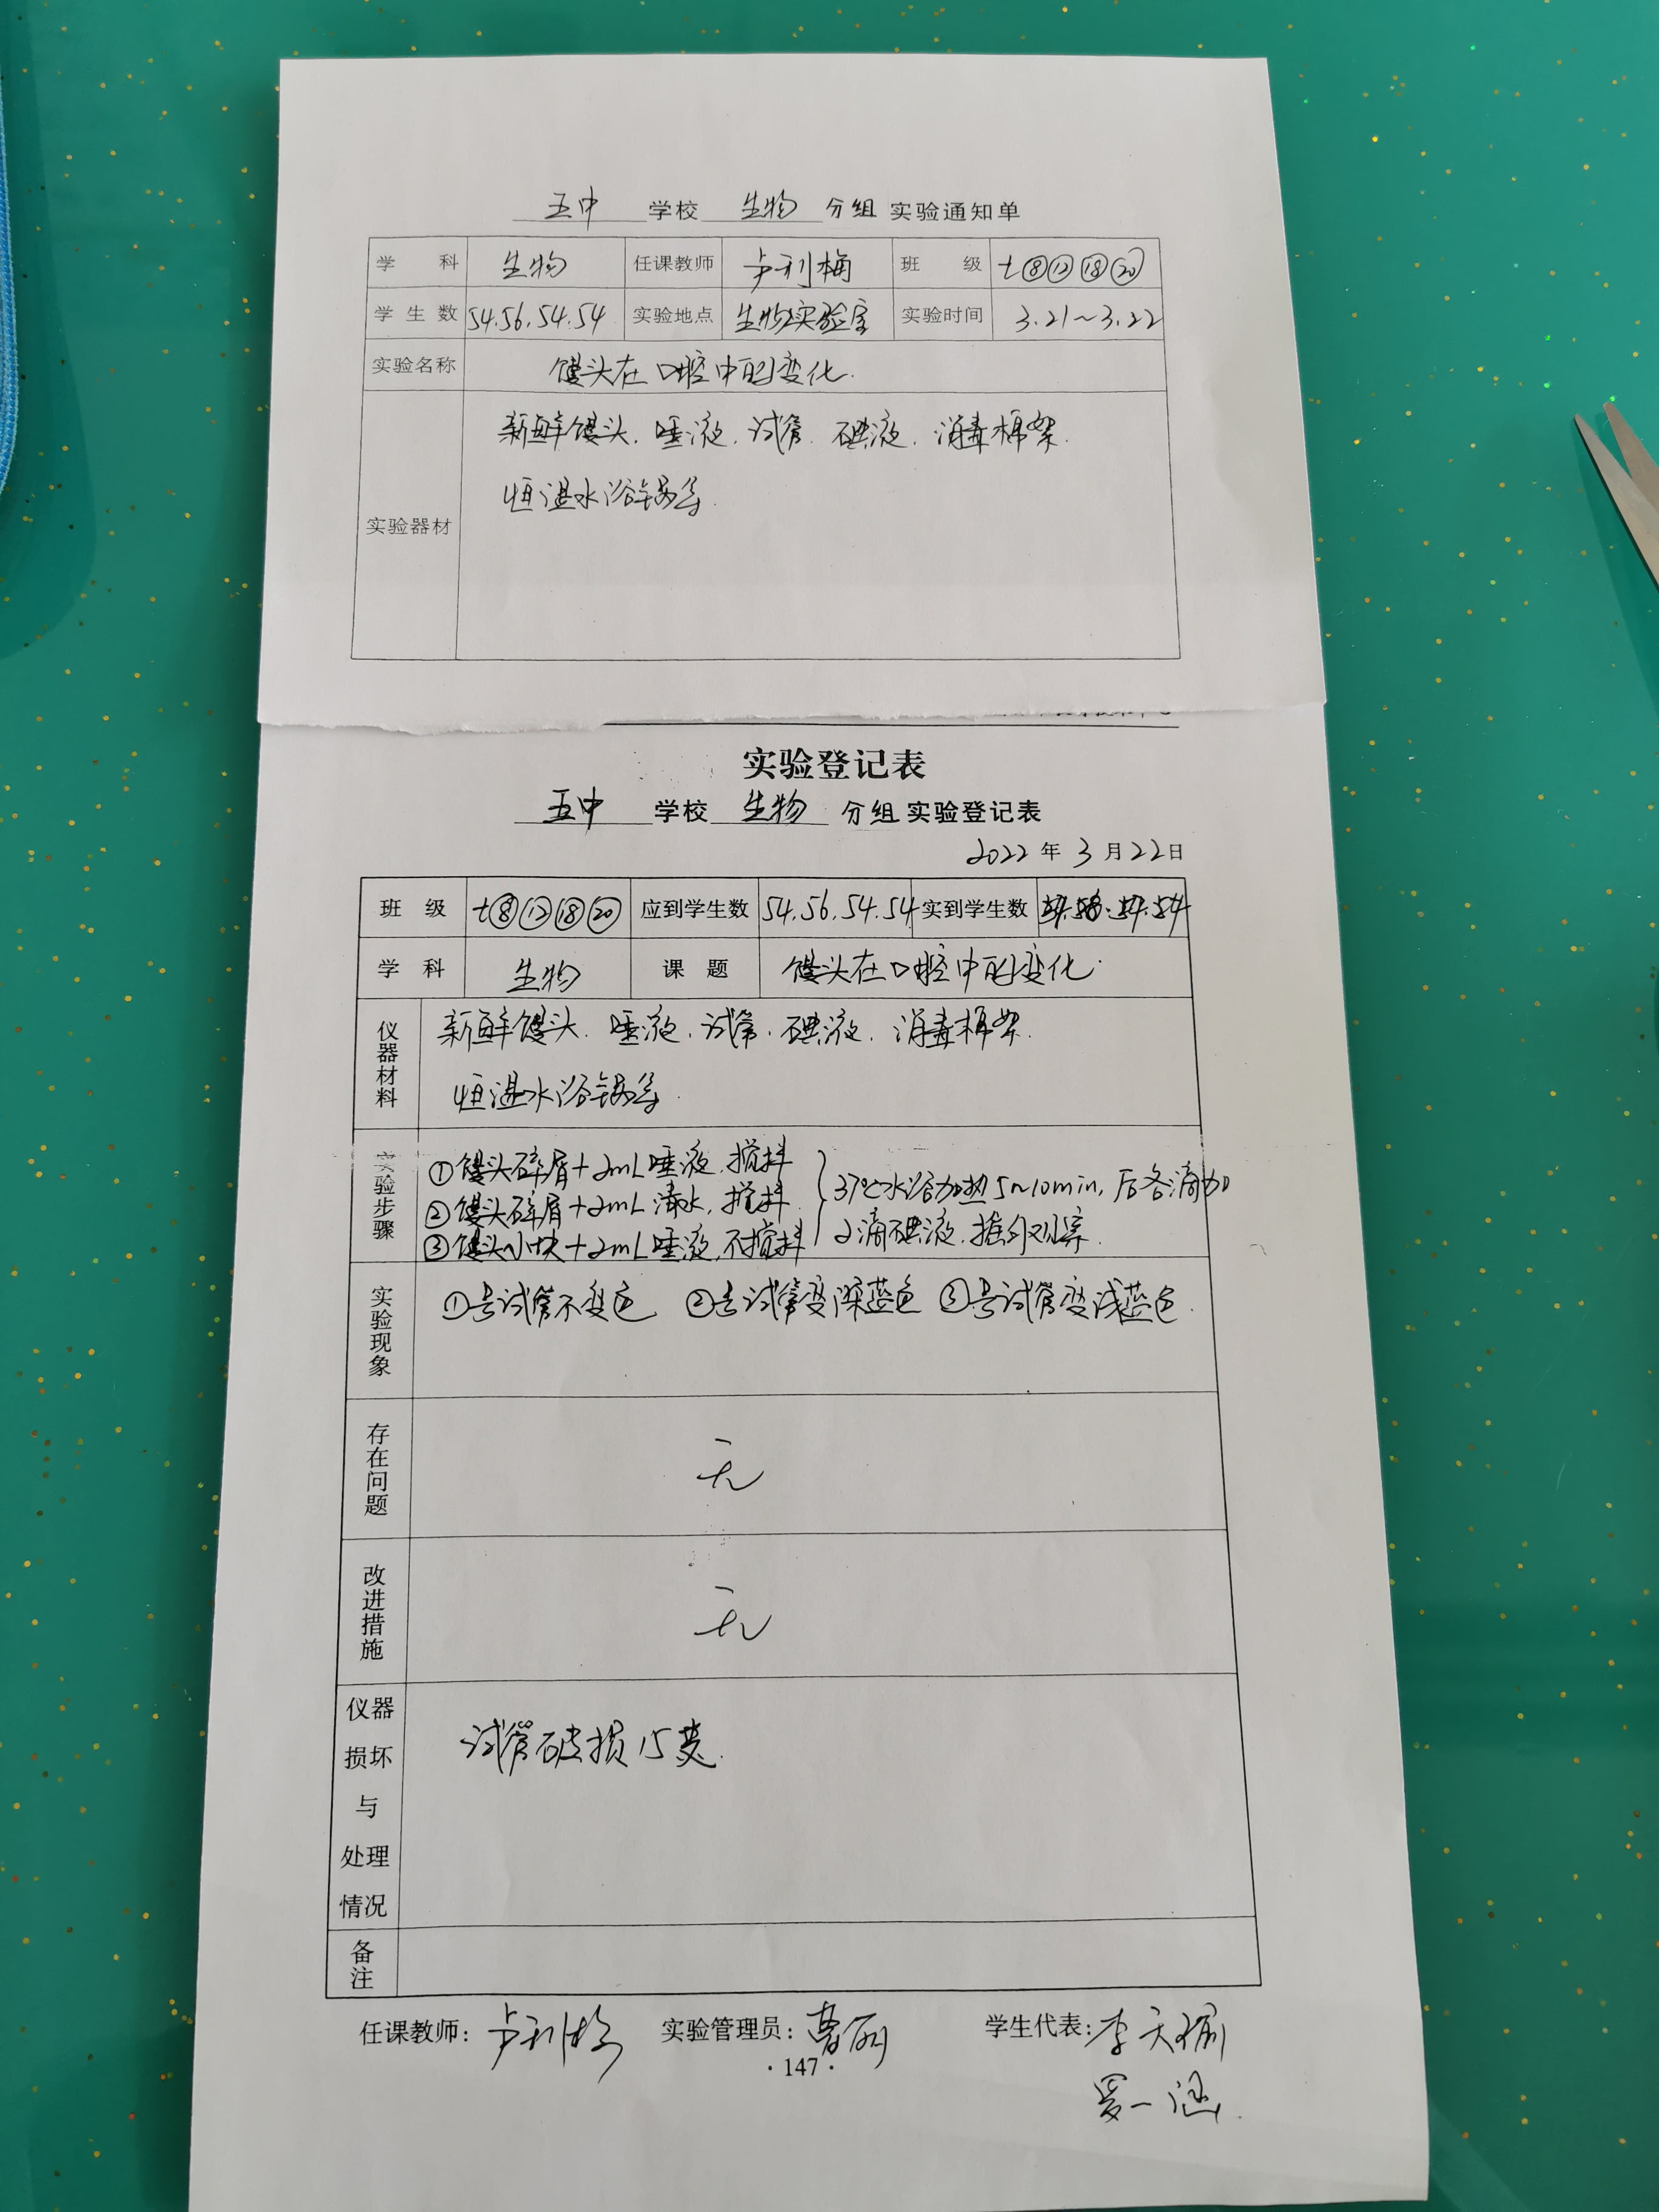 五中 学校 生物 分组 实验通知单
学 科 生物 任课教师 卢利梅 班 级 七⑧⑫⑱⑳
学生数 54.56.54.54 实验地点 生物实验室 实验时间 3.21~3.22
实验名称 馒头在口腔中的变化.
新鲜馒头. 唾液. 试管. 碘液. 消毒棉絮.
恒温水浴锅等.
实验器材
实验登记表
五中 学校 生物 分组 实验登记表
2022 年 3 月 22 日
班 级 七⑧⑫⑱⑳ 应到学生数 54.56.54.54 实到学生数 54.56.54.54
学 科 生物 课 题 馒头在口腔中的变化.
仪器材料 新鲜馒头. 唾液. 试管. 碘液. 消毒棉絮.
恒温水浴锅等.
实验步骤
①馒头碎屑+2mL唾液.搅拌
②馒头碎屑+2mL清水.搅拌
③馒头小块+2mL唾液.不搅拌
37℃水浴加热5~10min,后各滴加
2滴碘液.摇匀观察.
实验现象 ①号试管不变色 ②号试管变深蓝色 ③号试管变浅蓝色.
存在问题 无
改进措施 无
仪器损坏与处理情况 试管破损15支.
备注
任课教师: 卢利梅 实验管理员: 学生代表: 李天
· 147 ·
罗一涵.